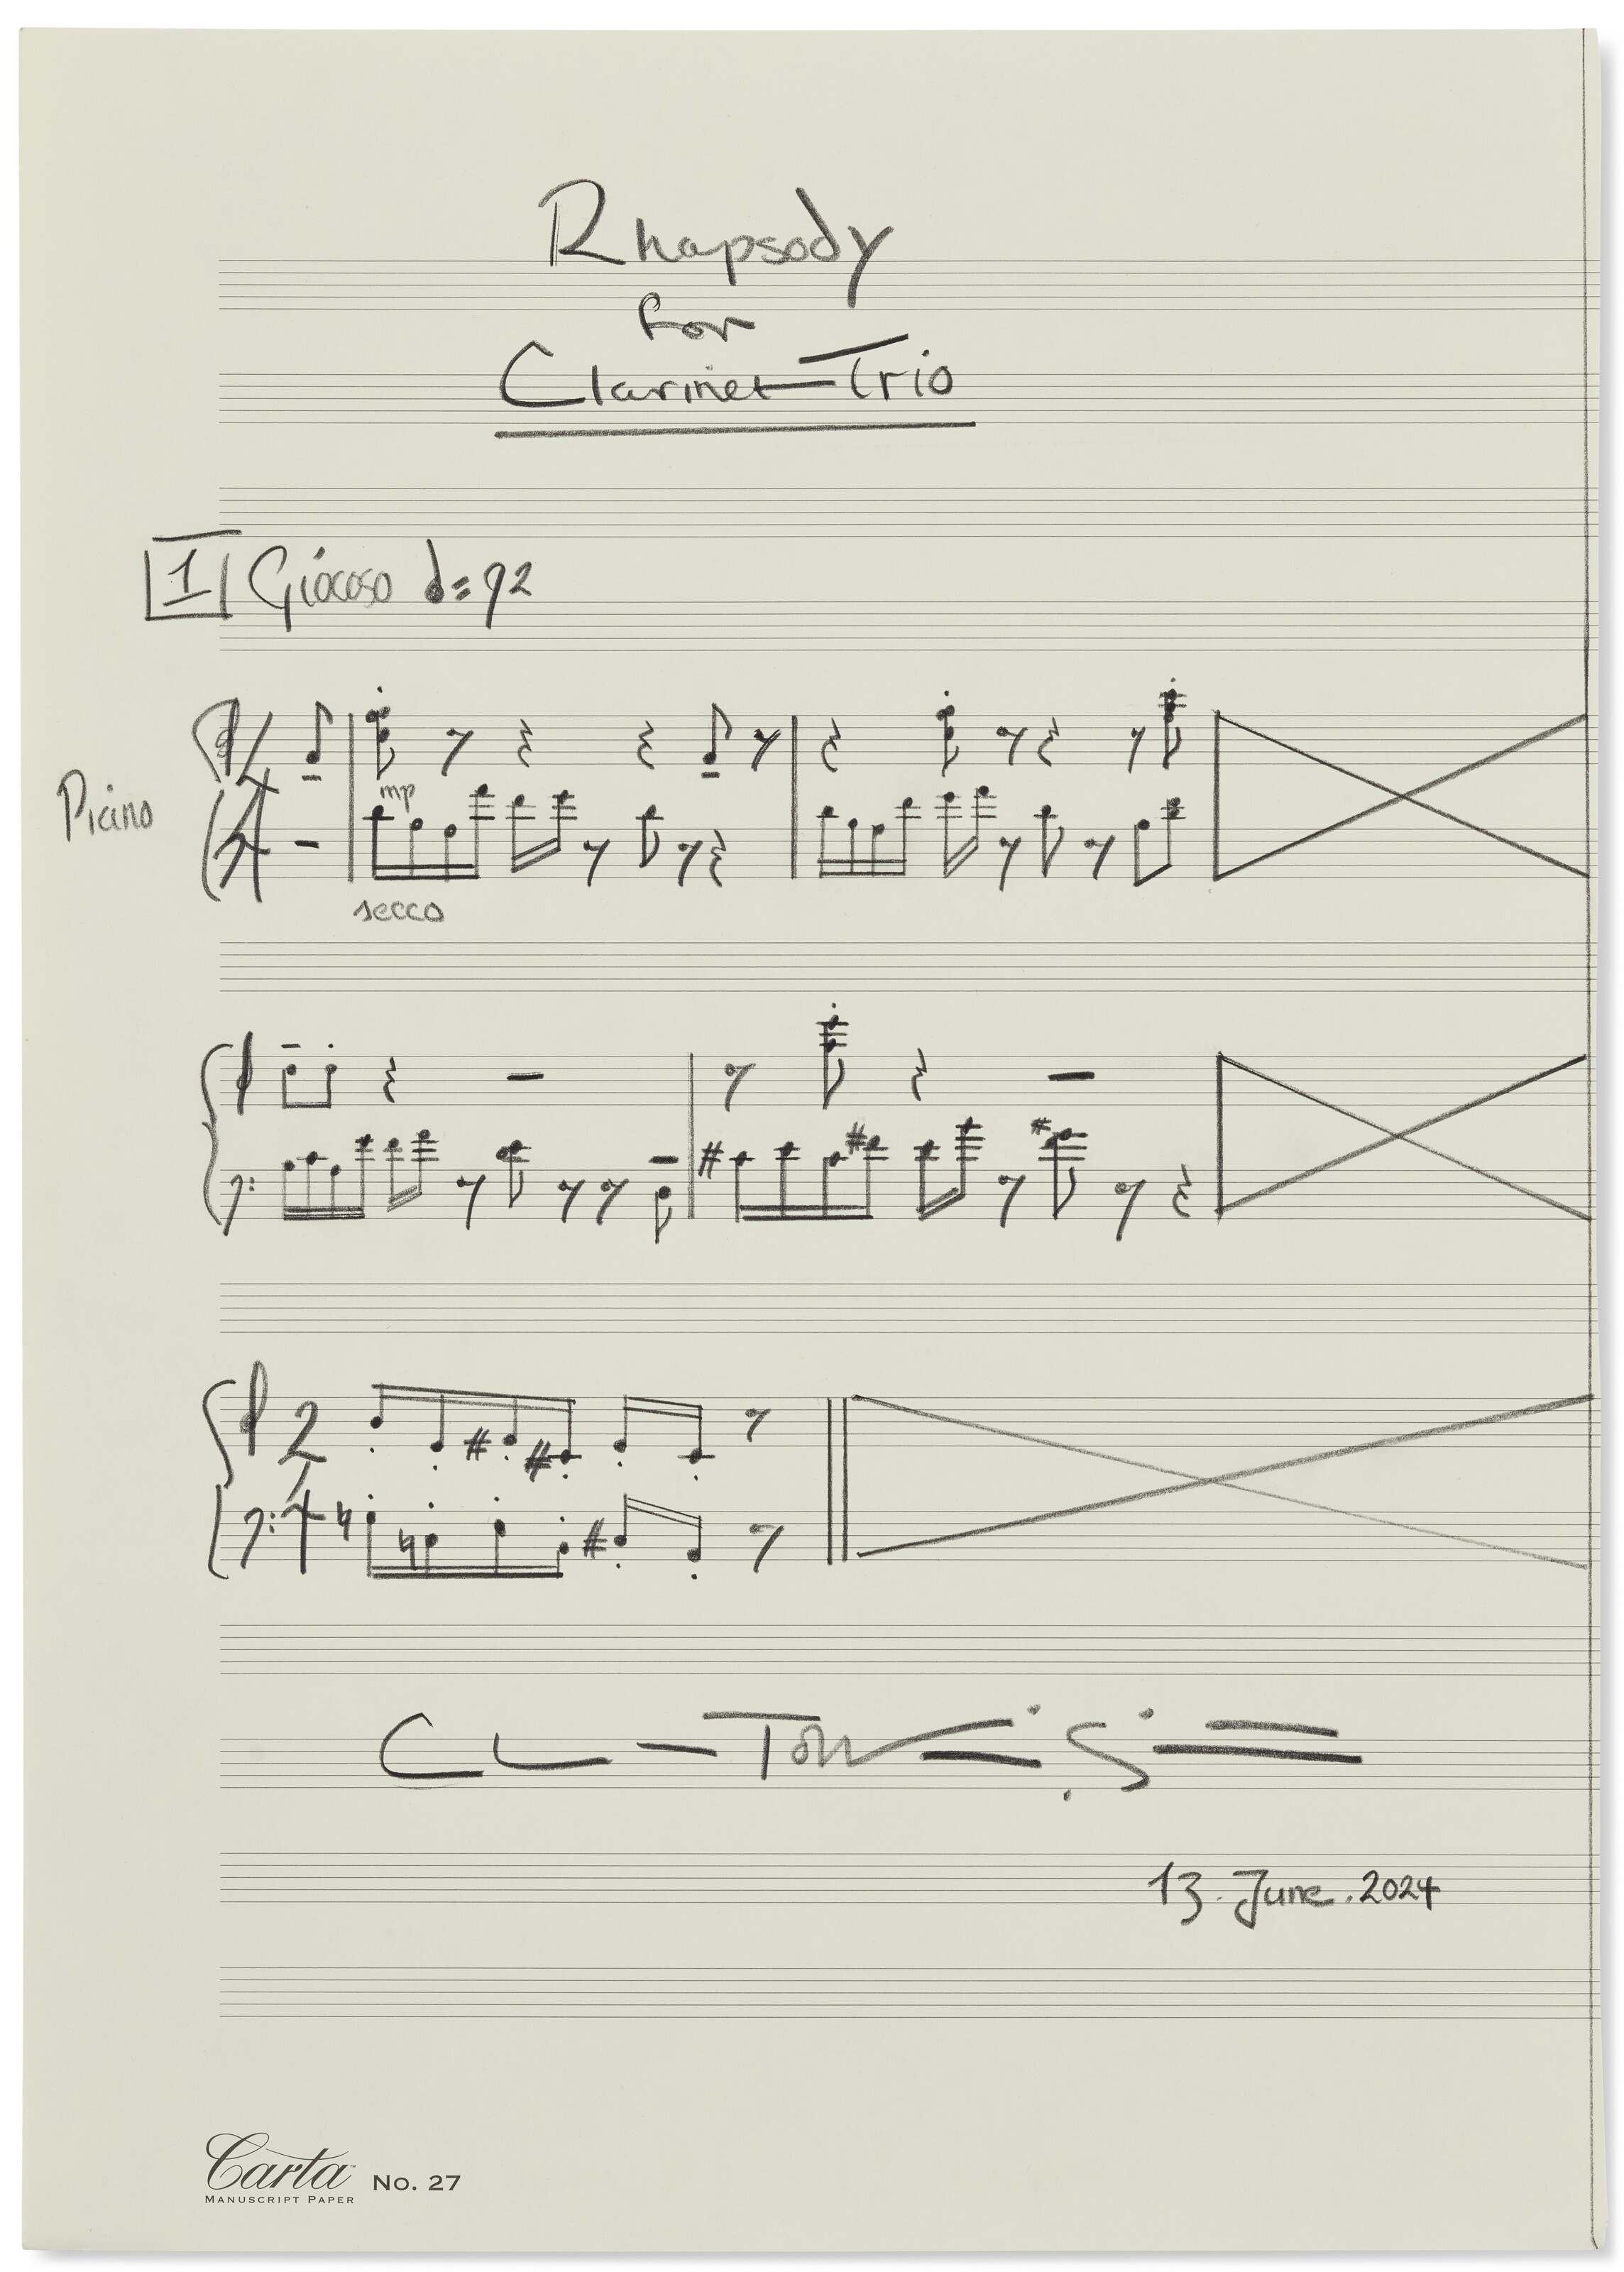 Rhapsody
for
Clarinet Trio
1 Giocoso 𝅗𝅥=92
Piano
mp
secco
2
4
13. June. 2024
Carta™ No. 27
MANUSCRIPT PAPER